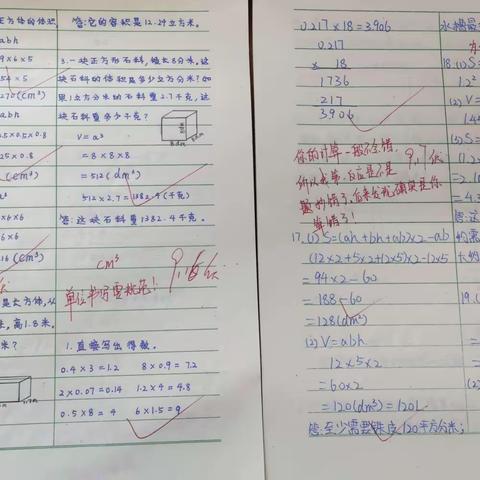 方体的体积
abh
9×6×5
54×5
270(cm³)
abh
.5×0.5×0.8
25×0.8
(cm³)
6×6
16(cm³)
是长方体,从
米,高1.8米.
米?
答:它的容积是12.29立方米.
3.一块正方形石料,棱长8分米,这
块石料的体积是多少立方分米?如
果1立方分米的石料重2.7千克,这
块石料重多少千克?
V=a³
=8×8×8
=512(dm³)
512×2.7=1382.4(千克)
答:这块石料重1382.4千克.
cm³
单位书写要规范!
9,16
1.直接写出得数.
0.4×3=1.2 8×0.9=7.2
2×0.07=0.14 1.2×4=4.8
0.5×8=4 6×1.5=9
0.217×18=3.906
0.217
× 18
1736
217
3906
你的计算一般不会错,
所以我第一反应是不是
题抄错了,后来发现确实是你
算错了!
9,7
17.(1)S=(ah+bh+ab)×2-ab
(12×2+5×2+12×5)×2-12×5
=94×2-60
=188-60
=128(dm²)
(2)V=abh
12×5×2
=60×2
=120(dm³)=120L
答:至少需要铁皮120平方分米;
水桶最
18.(1)S=
1.2²
(2)V=
1.44
(3)S=
(1.2×
=2.
=4.3
答:这
19.(
(2)